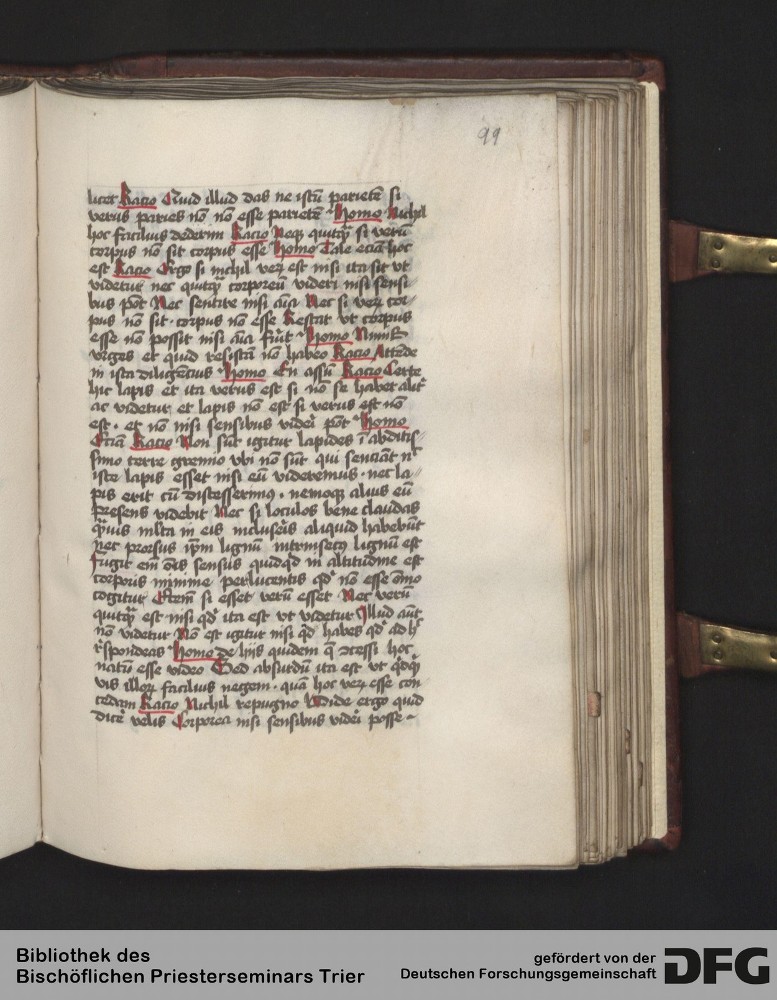 99
licet Racio Quid illud das ne istū parietē si
verus paries nō nō esse parietē Homo Nichil
hoc facilius dederim Racio Neqꝫ quitqͣꝫ si verū
corpus nō sit corpus esse Homo Tale eciā hoc
est Racio Ergo si nichil verꝫ est nisi ita sit vt
videtur nec quitqͣꝫ corporeū videri nisi sensi
bus pōt Nec sentire nisi aīa Nec si verꝫ cor
pus nō sit · corpus nō esse Restat vt corpus
esse nō possit nisi aīa fuīt Homo Nimiū
vrges et quid resistā nō habeo Racio Attēde
in ista diligēcius Homo En assū Racio Certe
hic lapis et ita verus est si nō se habet alitʳ
ac videtur et lapis nō est si verus est nō
est · et nō nisi sensibus viderī pōt Homo
Eciā Racio Non sūt igitur lapides ī abditis
simo terre gremio vbi nō sūt qui senciāt nͨ
iste lapis esset nisi eū videremus · nec la
pis erit cū discesserimꝰ · nemoqꝫ alius eū
presens videbit Nec si loculos bene claudas
qͣꝫuis mlta in eis incluserīs aliquid habebūt
nec prorsus ipm̄ lignū intrinsecꝰ lignū est
fugit em̄ oēs sensus quidqd in altitudine est
corporis minime perlucentis qdʾ nō esse omīo
cogitur Etem̄ si esset verū esset Nec verū
quitqͣꝫ est nisi qdʾ ita est vt videtur Illud aūt
nō videtur Nō est igitur nisi qd habes qdʾ ad hͦ
rʾspondeas Homo De hijs quidem q̄ ꝯcessi hoc
natū esse video Sed absurdū ita est vt qͥdqͥꝫ
vis illoꝝ facilius negem · quā hoc verꝫ esse con
cedam Racio Nichil repugno Vide ergo quid
dicē velis Corporea nisi sensibus viderī posse
Bibliothek des
Bischöflichen Priesterseminars Trier
gefördert von der
Deutschen Forschungsgemeinschaft
DFG